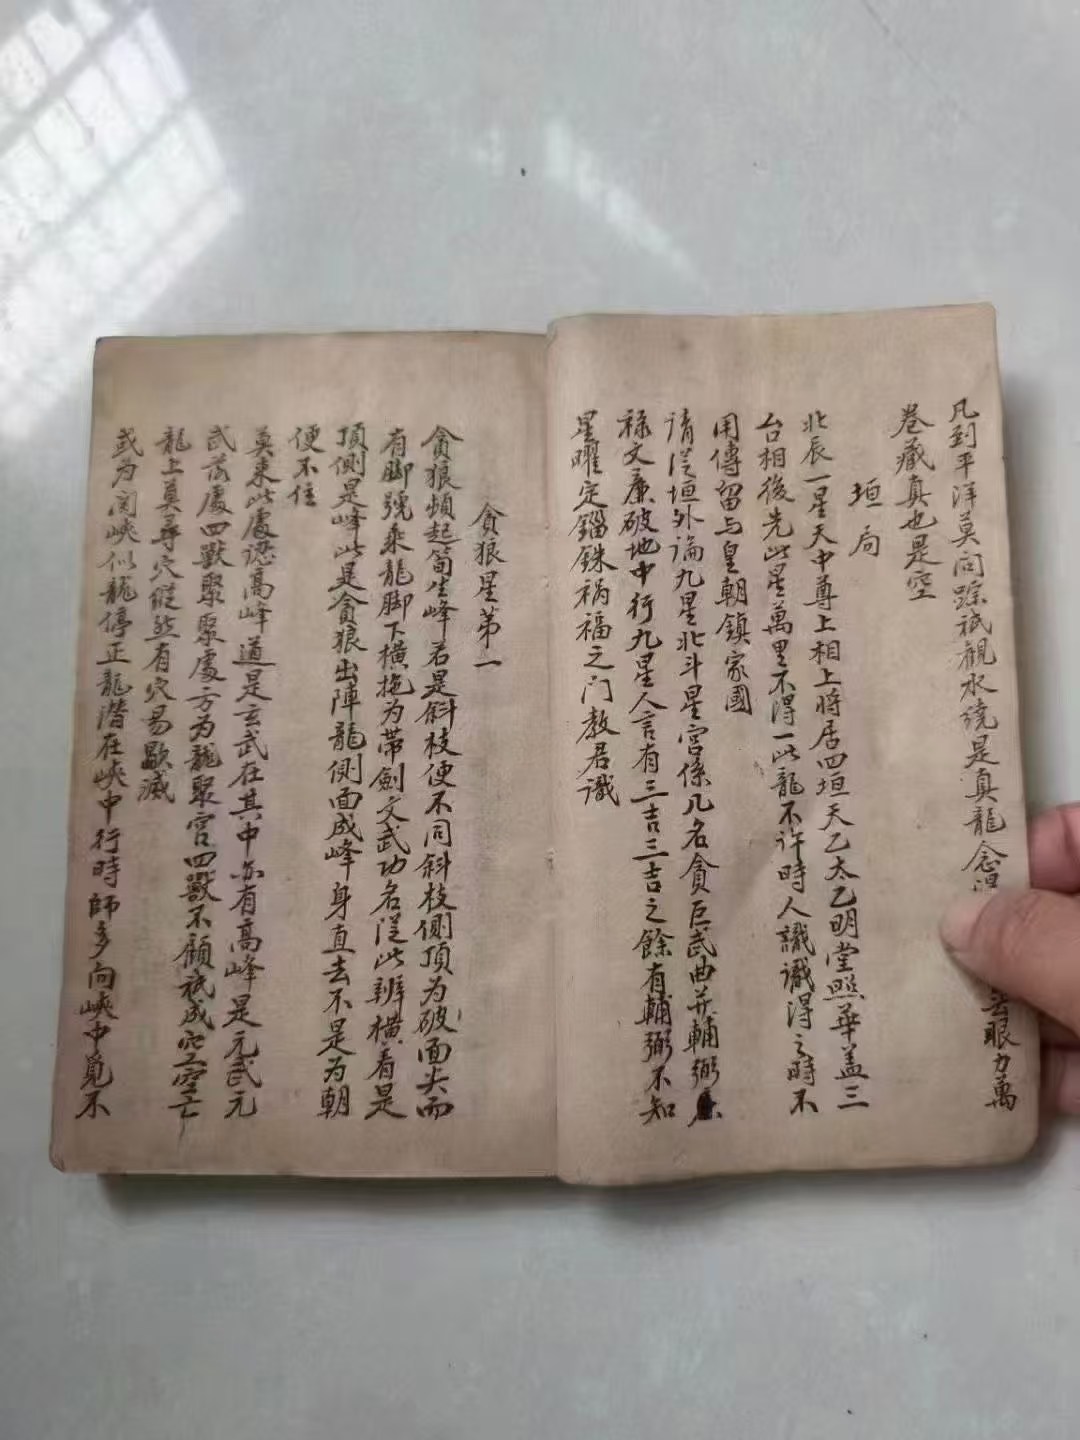 凡到平洋莫问踪祇觀水繞是真龍念淂 眼力萬
卷藏真也是空
垣局
北辰一星天中尊上相上將居四垣天乙太乙明堂照華盖三
台相後先此星萬里不得一此龍不许時人識識得之時不
用傳留与皇朝鎮家國
请從垣外論九星北斗星宫係几名貪巨武曲并輔弼
祿文廉破地中行九星人言有三吉三吉之餘有輔弼不知
星曜定錙銖祸福之门教君識
貪狼星第一
貪狼頻起笋生峰若是斜枝便不同斜枝側頂为破面尖而
有脚號乘龍脚下横拖为带劍文武功名從此辨横看是
頂側是峰此是貪狼出陣龍側面成峰身直去不是为朝
便不住
莫来此處認高峰道是玄武在其中亦有高峰是元武元
武落處四獸聚聚處方为龍聚宫四獸不顧祇成空亡
龍上莫尋穴縱然有穴易歇滅
或为関峽似龍停正龍潛在峽中行時師多向峽中覓不